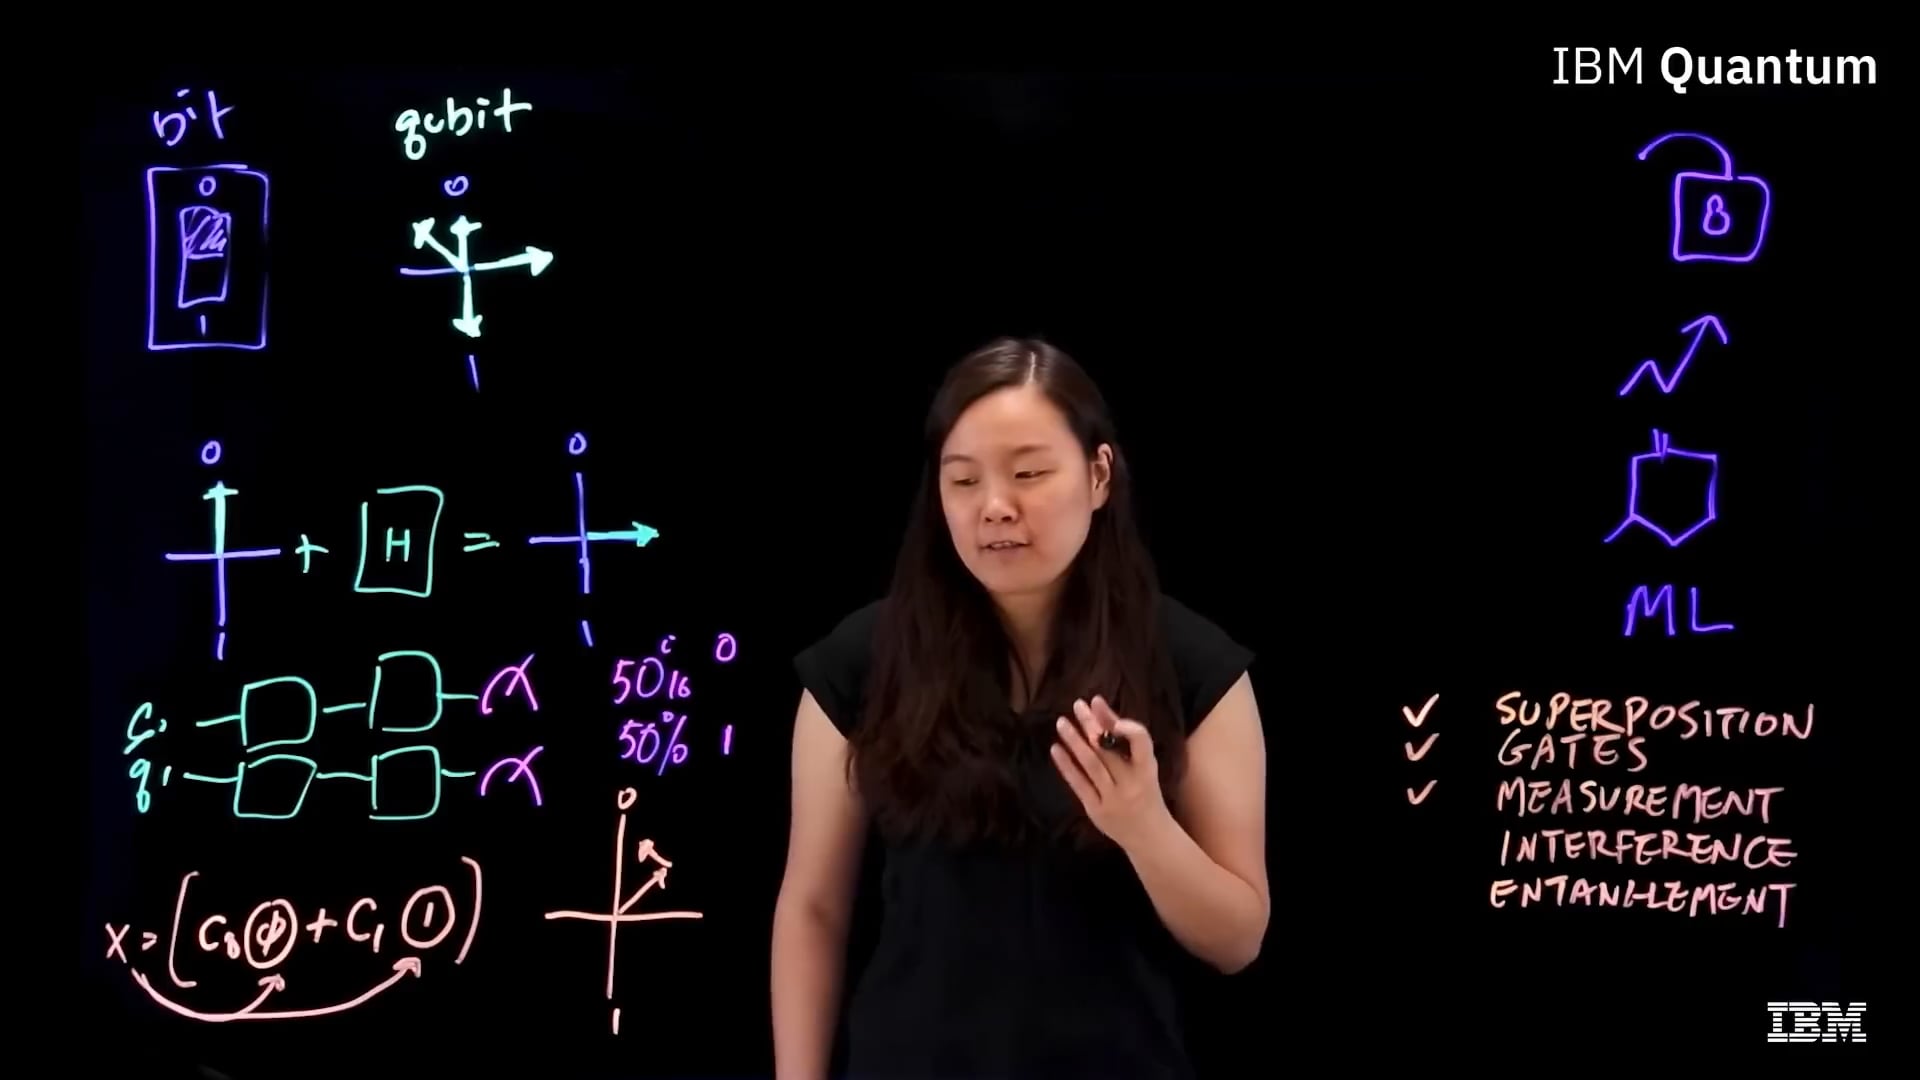 IBM Quantum
bit
qubit
0
0
8
1
1
0
0
+ H =
ML
1
1
50% 0
50% 1
q1
✓ SUPERPOSITION
✓ GATES
✓ MEASUREMENT
INTERFERENCE
ENTANGLEMENT
0
X = (C0 0 + C1 1)
1
IBM